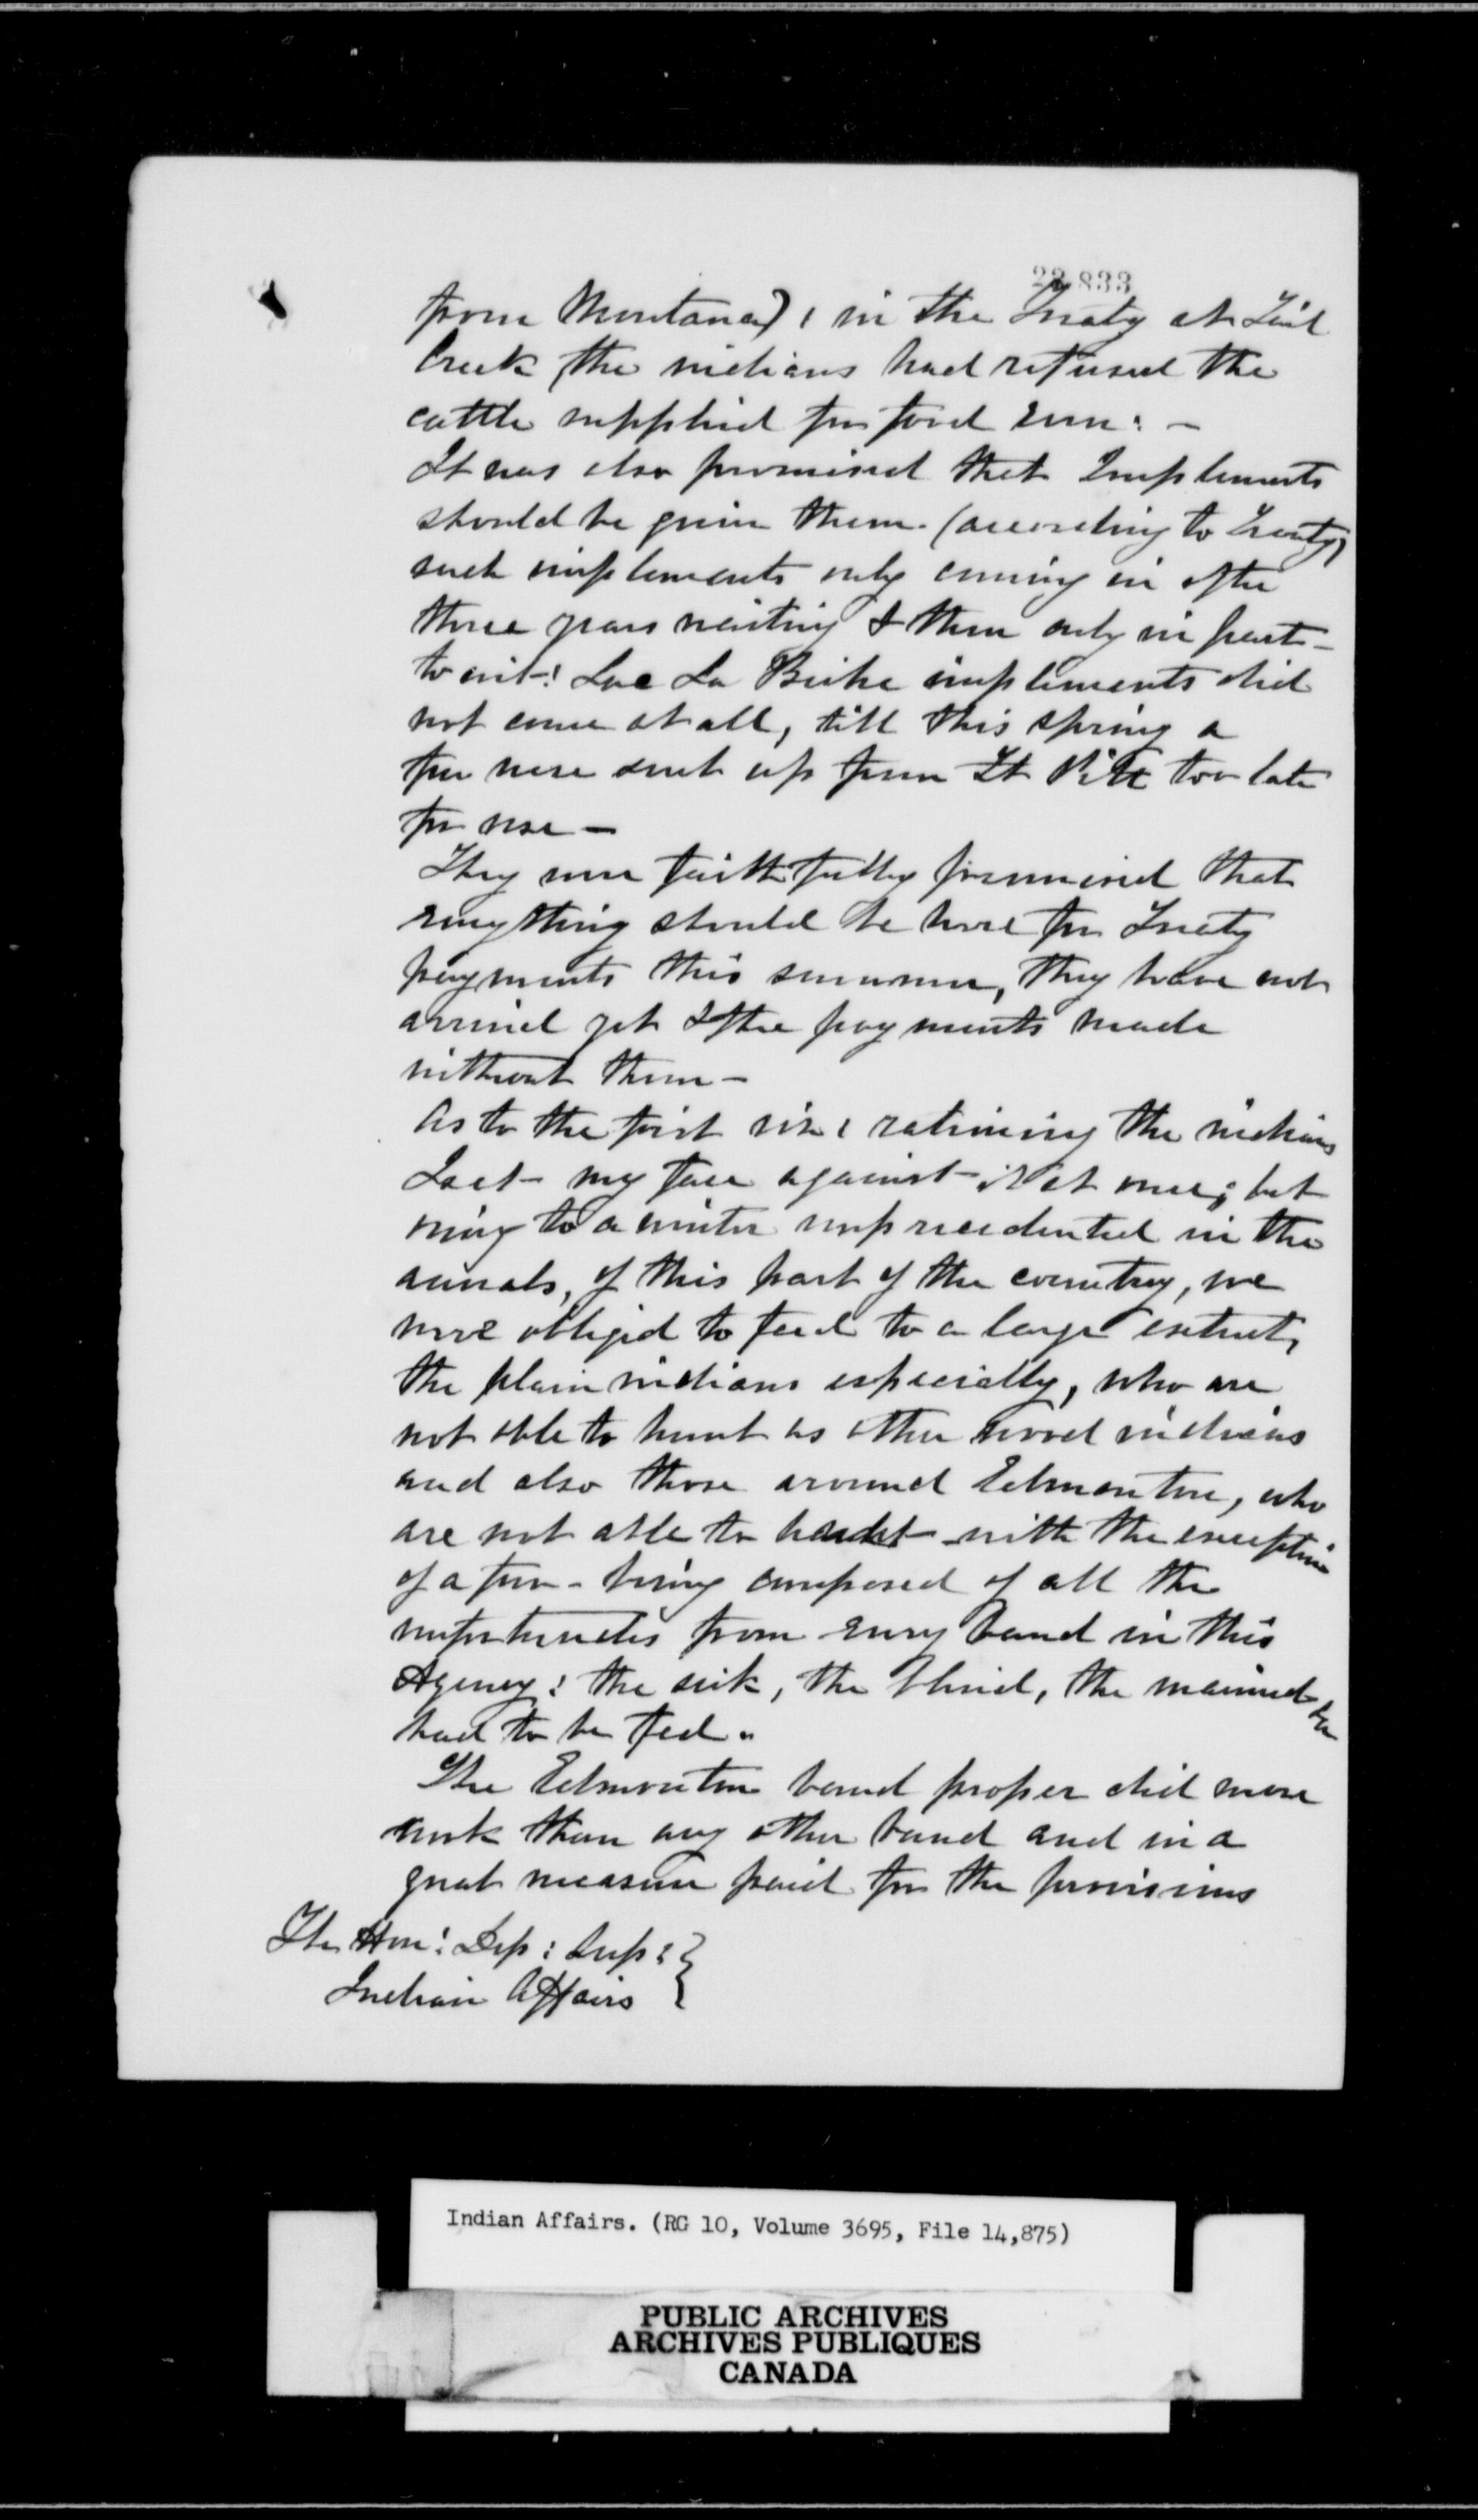 22,833
from Montana), in the Treaty at Tail
Creek the indians had refused the
cattle supplied for food even: -
It was also promised that Implements
should be given them. (according to Treaty)
such implements only coming in after
three years waiting & then only in part -
to wit: Lac La Biche implements did
not come at all, till this spring a
few were sent up from Ft Pitt too late
for use -
They were faithfully promised that
everything should be here for Treaty
payments this summer, they have not
arrived yet & the payments made
without them -
As to the first viz: rationing the indians
I set my face against it at once; but
owing to a winter unprecedented in the
annals, of this part of the country, we
were obliged to feed to a large extent,
the plain indians especially, who are
not able to hunt as other wood indians
and also those around Edmonton, who
are not able to hunt with the exception
of a few - being composed of all the
unfortunates from every band in this
Agency: the sick, the blind, the maimed &c
had to be fed.
The Edmonton band proper did more
work than any other band and in a
great measure paid for the provisions
The Hon: Dep: Sup: }
Indian Affairs
Indian Affairs. (RG 10, Volume 3695, File 14,875)
PUBLIC ARCHIVES
ARCHIVES PUBLIQUES
CANADA